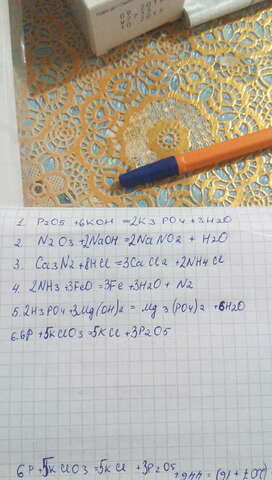 1. P2O5 + 6KOH = 2K3PO4 + 3H2O
2. N2O3 + 2NaOH = 2NaNO2 + H2O
3. Ca3N2 + 8HCl = 3CaCl2 + 2NH4Cl
4. 2NH3 + 3FeO = 3Fe + 3H2O + N2
5. 2H3PO4 + 3Mg(OH)2 = Mg3(PO4)2 + 6H2O
6. 6P + 5KClO3 = 5KCl + 3P2O5
6P + 5KClO3 = 5KCl + 3P2O5